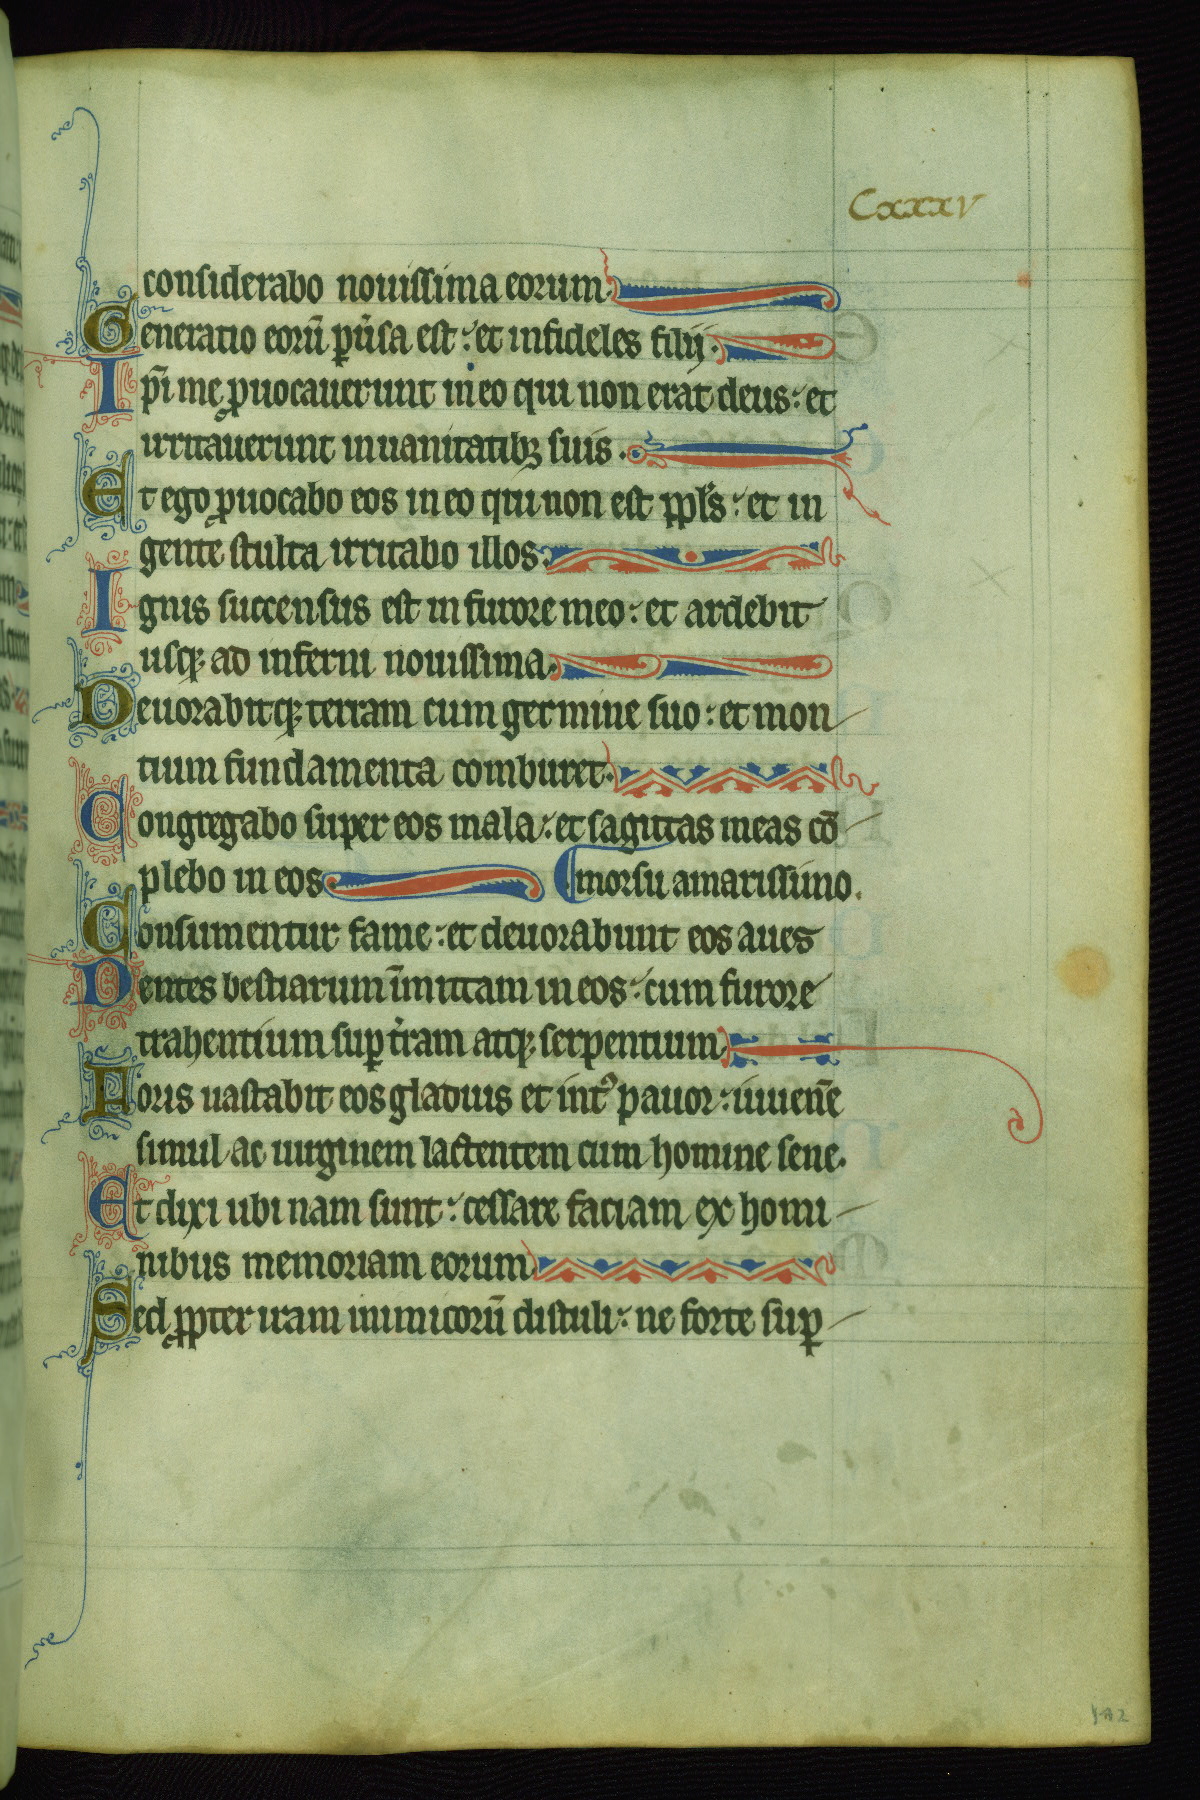 Cxxxv
considerabo nouissima eorum.
Generatio eorū ꝑūsa est: et infideles filij.
Ipī me ꝓuocauerunt in eo qui non erat deus: et
irritauerunt in uanitatibꝫ suis.
Et ego ꝓuocabo eos in eo qui non est ppl̄s: et in
gente stulta irritabo illos:
Ignis succensus est in furore meo: et ardebit
usqꝫ ad inferni nouissima.
Deuorabitqꝫ terram cum germine suo: et mon
tium fundamenta comburet.
Congregabo super eos mala: et sagittas meas cō
plebo in eos morsu amarissimo.
Consumentur fame: et deuorabunt eos aues
Dentes bestiarum īmittam in eos: cum furore
trahentium suꝑ t̄ram atqꝫ serpentium
Foris uastabit eos gladius et int᾿ pauor: iuuenē
simul ac uirginem lactentem cum homine sene.
Et dixi ubi nam sunt: cessare faciam ex homi
nibus memoriam eorum
Sed ꝓpter iram inimicorū distuli: ne forte suꝑ